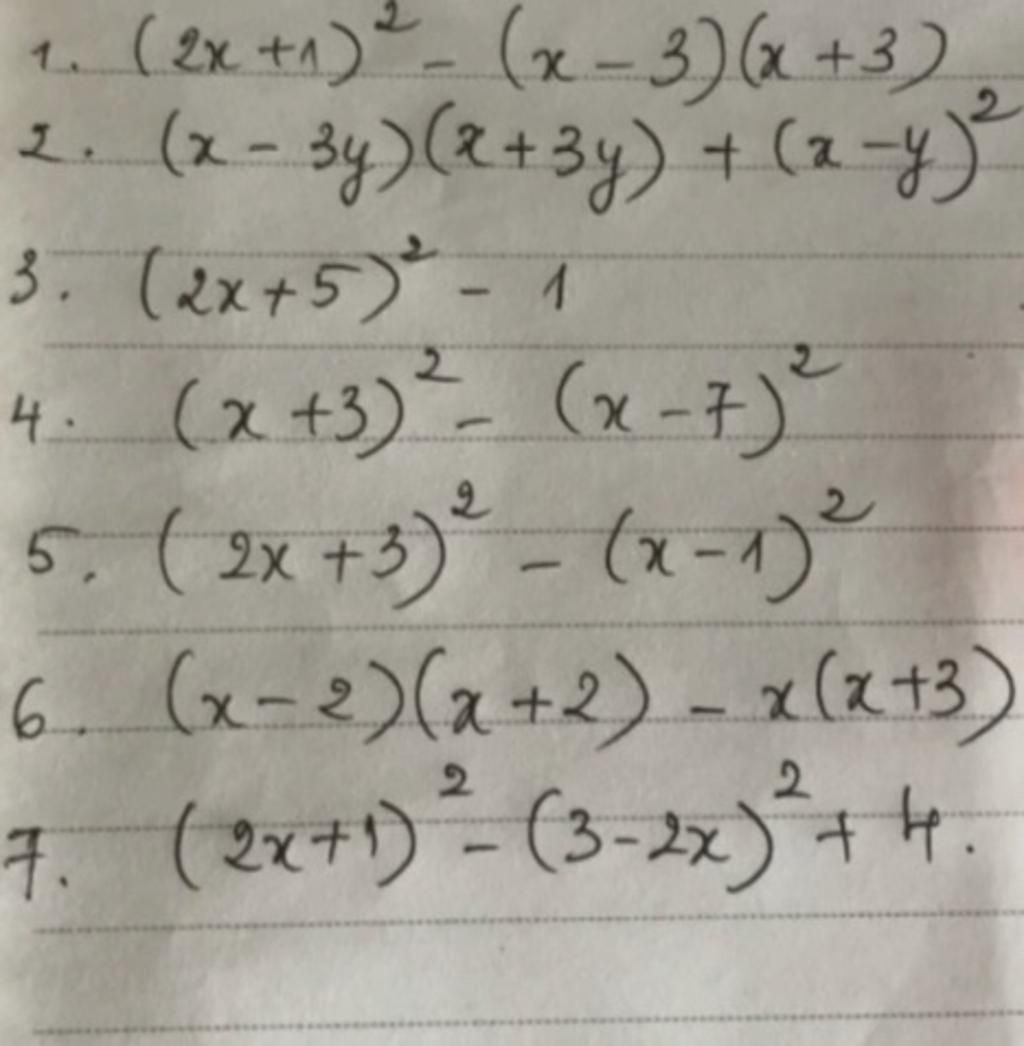 1. (2x+1)² - (x-3)(x+3)
2. (x-3y)(x+3y) + (x-y)²
3. (2x+5)² - 1
4. (x+3)² - (x-7)²
5. (2x+3)² - (x-1)²
6. (x-2)(x+2) - x(x+3)
7. (2x+1)² - (3-2x)² + 4.